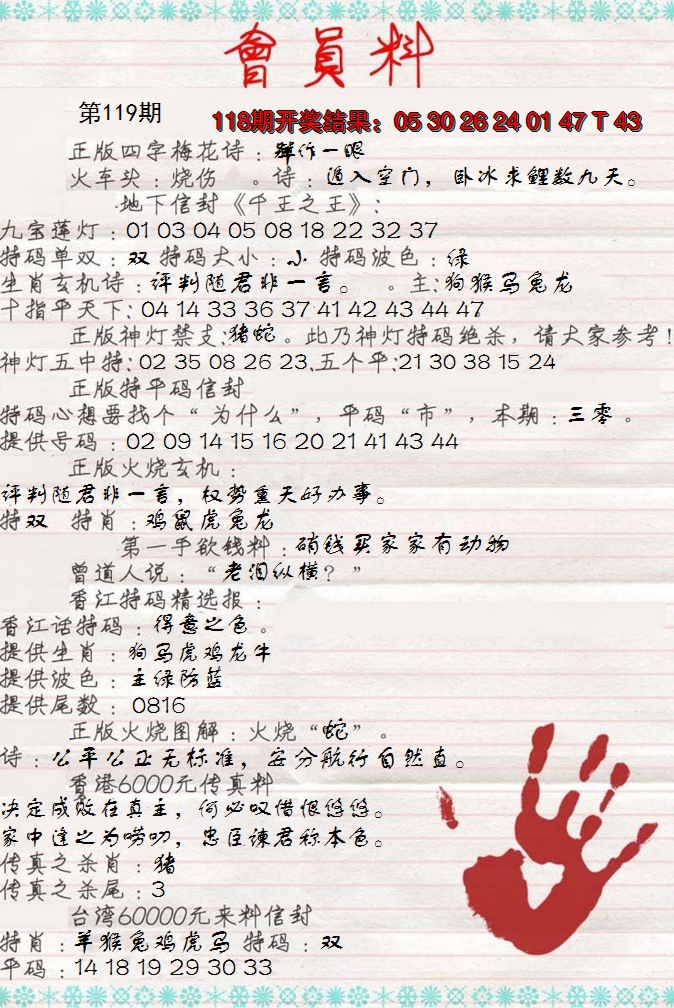 會員料
第119期
118期开奖结果：05 30 26 24 01 47 T 43
正版四字梅花诗：群作一眼
火车头：烧伤 。诗：遁入空门，卧冰求鲤数九天。
地下信封《千王之王》：
九宝莲灯：01 03 04 05 08 18 22 32 37
特码单双：双 特码大小：小 特码波色：绿
生肖玄机诗：评判随君非一言。 。主：狗猴马兔龙
十指平天下：04 14 33 36 37 41 42 43 44 47
正版神灯禁支：猪蛇。此乃神灯特码绝杀，请大家参考！
神灯五中特：02 35 08 26 23.五个平：21 30 38 15 24
正版特平码信封
特码心想要找个“为什么”，平码“市”，本期：三零。
提供号码：02 09 14 15 16 20 21 41 43 44
正版火烧玄机：
评判随君非一言，权势熏天好办事。
特双 特肖：鸡鼠虎兔龙
第一手欲钱料：硝钱买家家有动物
曾道人说：“老泪纵横？”
香江特码精选报：
香江话特码：得意之色。
提供生肖：狗马虎鸡龙牛
提供波色：主绿防蓝
提供尾数：0816
正版火烧图解：火烧“蛇”。
诗：公平公正无标准，安分航行自然直。
香港6000元传真料
决定成败在真主，何必叹惜恨悠悠。
家中逢之为唠叨，忠臣谏君称本色。
传真之杀肖：猪
传真之杀尾：3
台湾60000元来料信封
特肖：羊猴兔鸡虎马 特码：双
平码：14 18 19 29 30 33